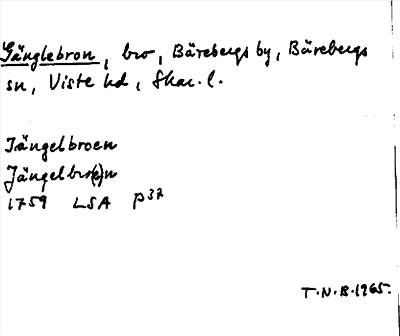 Gänglebron, bro, Bärebergs by, Bärebergs
sn, Viste hd, Skar. l.
Jängelbroen
Jängelbro(e)n
1759 LSA P37
T.N.B. 1965.